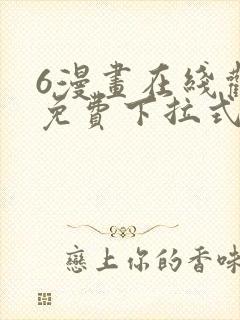 6漫畫在綫觀
免費下拉式
戀上你的香味